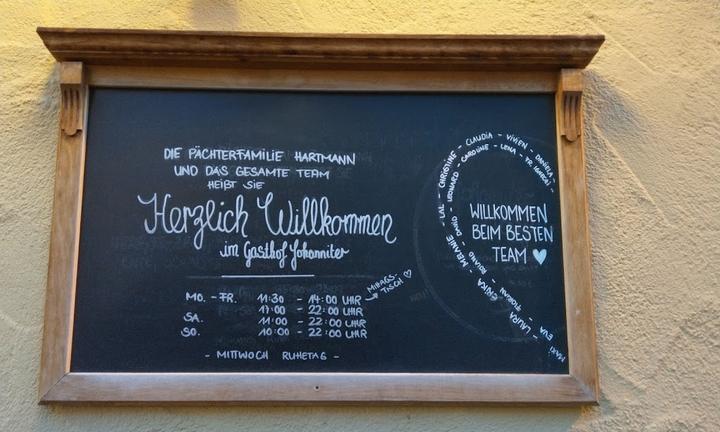 DIE PÄCHTERFAMILIE HARTMANN
UND DAS GESAMTE TEAM
HEIßT SIE
Herzlich Willkommen
im Gasthof Johanniter
MO. - FR. 11:30 - 14:00 UHR → MITTAGS-TISCH ♡
17:00 - 22:00 UHR
SA. 11:00 - 22:00 UHR
SO. 10:00 - 22:00 UHR
- MITTWOCH RUHETAG -
WILLKOMMEN
BEIM BESTEN
TEAM ♥
CHRISTINE - CLAUDIA - VIVIEN - DANIELA -
LEONARD - CAROLINE - LENA -
MELANIE - LAL -
ERIKA -
LAURA - FLORIAN -
EVA
MAXI